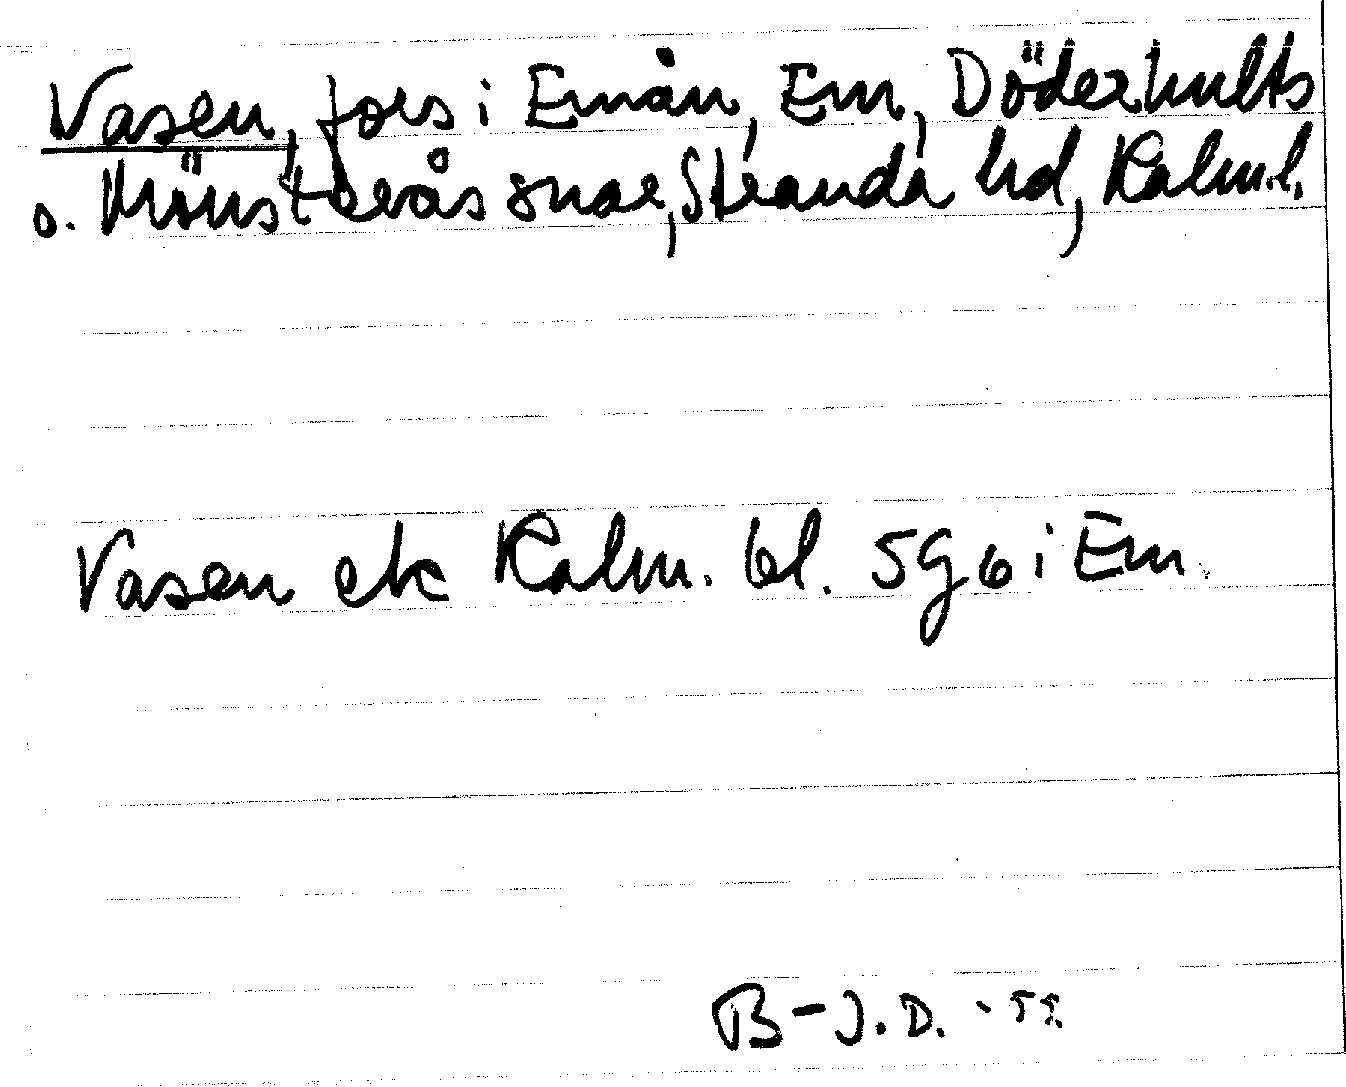 Vasen, fors i Emån, Em, Döderhults
o. Mönsterås snar, Stranda hd, Kalm.l.
Vasen ek Kalm. bl. 5g6 i Em.
B-J.D. -55.